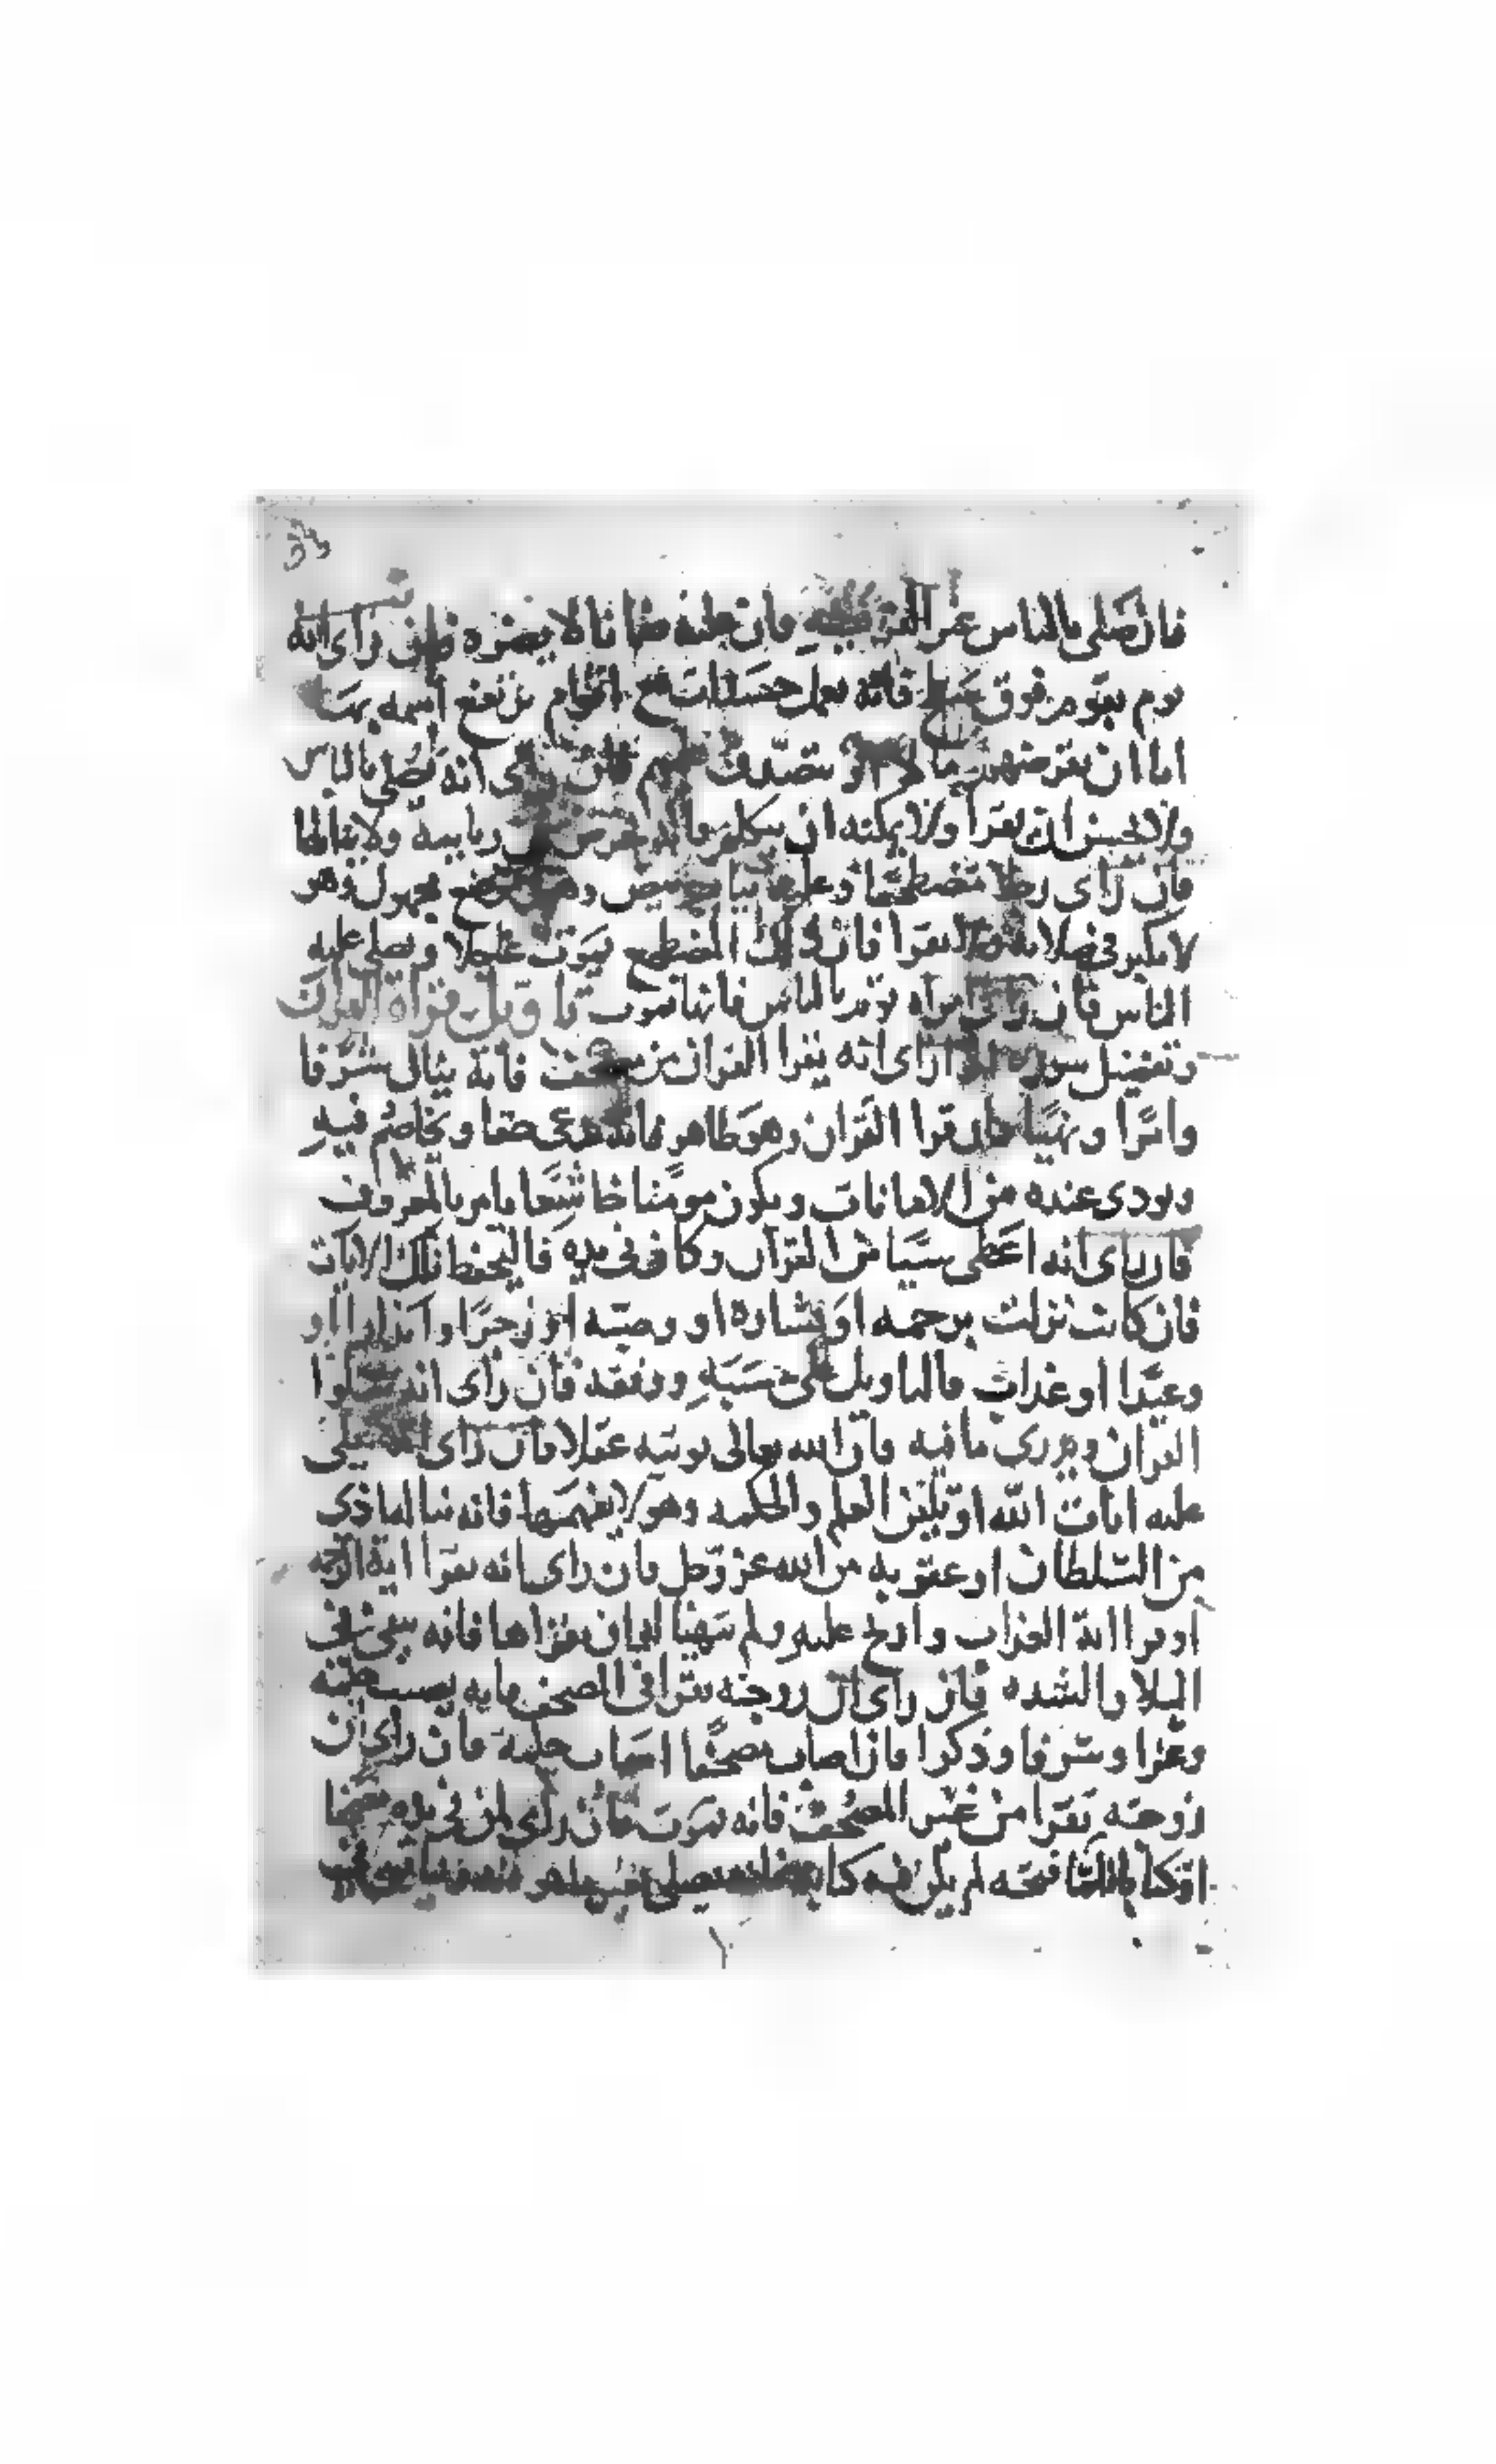 فان صلى بالناس غير القبلة فان خلفه ضامنا لا يضره فان راى انه
يوم بقوم فوق فانه يعمل حسنات مع اقوام ثم تقع اسمه بها
اما ان يقرضهم مالا او يتصدق عليهم فان راى انه يصلي بالناس
ولا يحسن ان يقرا ولا يمكنه ان يتكلم
فان راى رجلا مضطجعا وعليه ثياب بيض وهو موضع مجهول وهو
لا يكبر في صلاته ولا يقرا فان ذلك المضطجع يموت عليلا ويصلي عليه
الناس فان راى امراه توم بالناس فانها تموت تاويل قراة القران
وتفضيل سوره اذا راى انه يقرا القران من مصحف فانه ينال شرفا
وامرا ونهيا فان قرا القران وهو ظاهر فانه يدعى حقا ويخاصم فيه
ويودى عنده من الامانات ويكون مومنا خاشعا يامر بالمعروف
فان راى انه اعطى شيا من القران وكان في يده فاليحفظ تلك الايات
فان كانت نزلت برحمه او بشاره او وصيه او زجرا او انذارا او
وعيدا او عذاب فالتاويل على حسبه وونقد فان راى انه يتلوا
القران ويدرى ما فيه فان الله تعالى يوتيه عقلا فان راى انه يتلى
عليه ايات الله او يلقن العلم والحكمه وهو لا يفهمها فانه ينال اما اذى
من السلطان او عقوبه من الله عز وجل فان راى انه يقرا اية الرحمه
او قرا اية العذاب وارتج عليه ولم يتهيا له ان يقراها فانه يبقى في
البلا والشده فان راى ان زوجته تقرا في المصحف فانه يصيب
وعزا وشرفا وذكرا فان اصاب مصحفا اصاب حكمه فان راى ان
زوجته تقرا من غير المصحف فانه يموت فان راى ان في يده مصحفا
او كتابا فلما فتحه لم يكن فيه كتابه